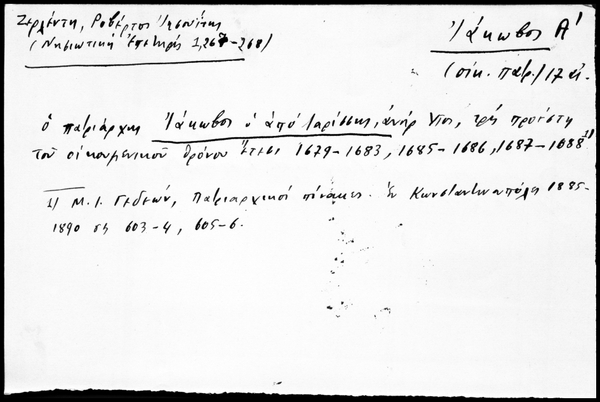 Ζερλέντη, Ροβέρτος Ἰησουίτης
(Νησιωτική Ἐπετηρίς 1,267-268)
Ἰάκωβος Α'
(οἰκ. πατρ.) 17 αἰ.
Ὁ πατριάρχης Ἰάκωβος ὁ ἀπό Λαρίσσης, ἀνήρ Χῖος, τρίς προέστη
τοῦ οἰκουμενικοῦ θρόνου ἔτεσι 1679-1683, 1685-1686, 1687-1688 1)
1) Μ. Ι. Γεδεών, Πατριαρχικοί πίνακες. Ἐν Κωνσταντινουπόλει 1885-
1890 σς 603-4, 605-6.